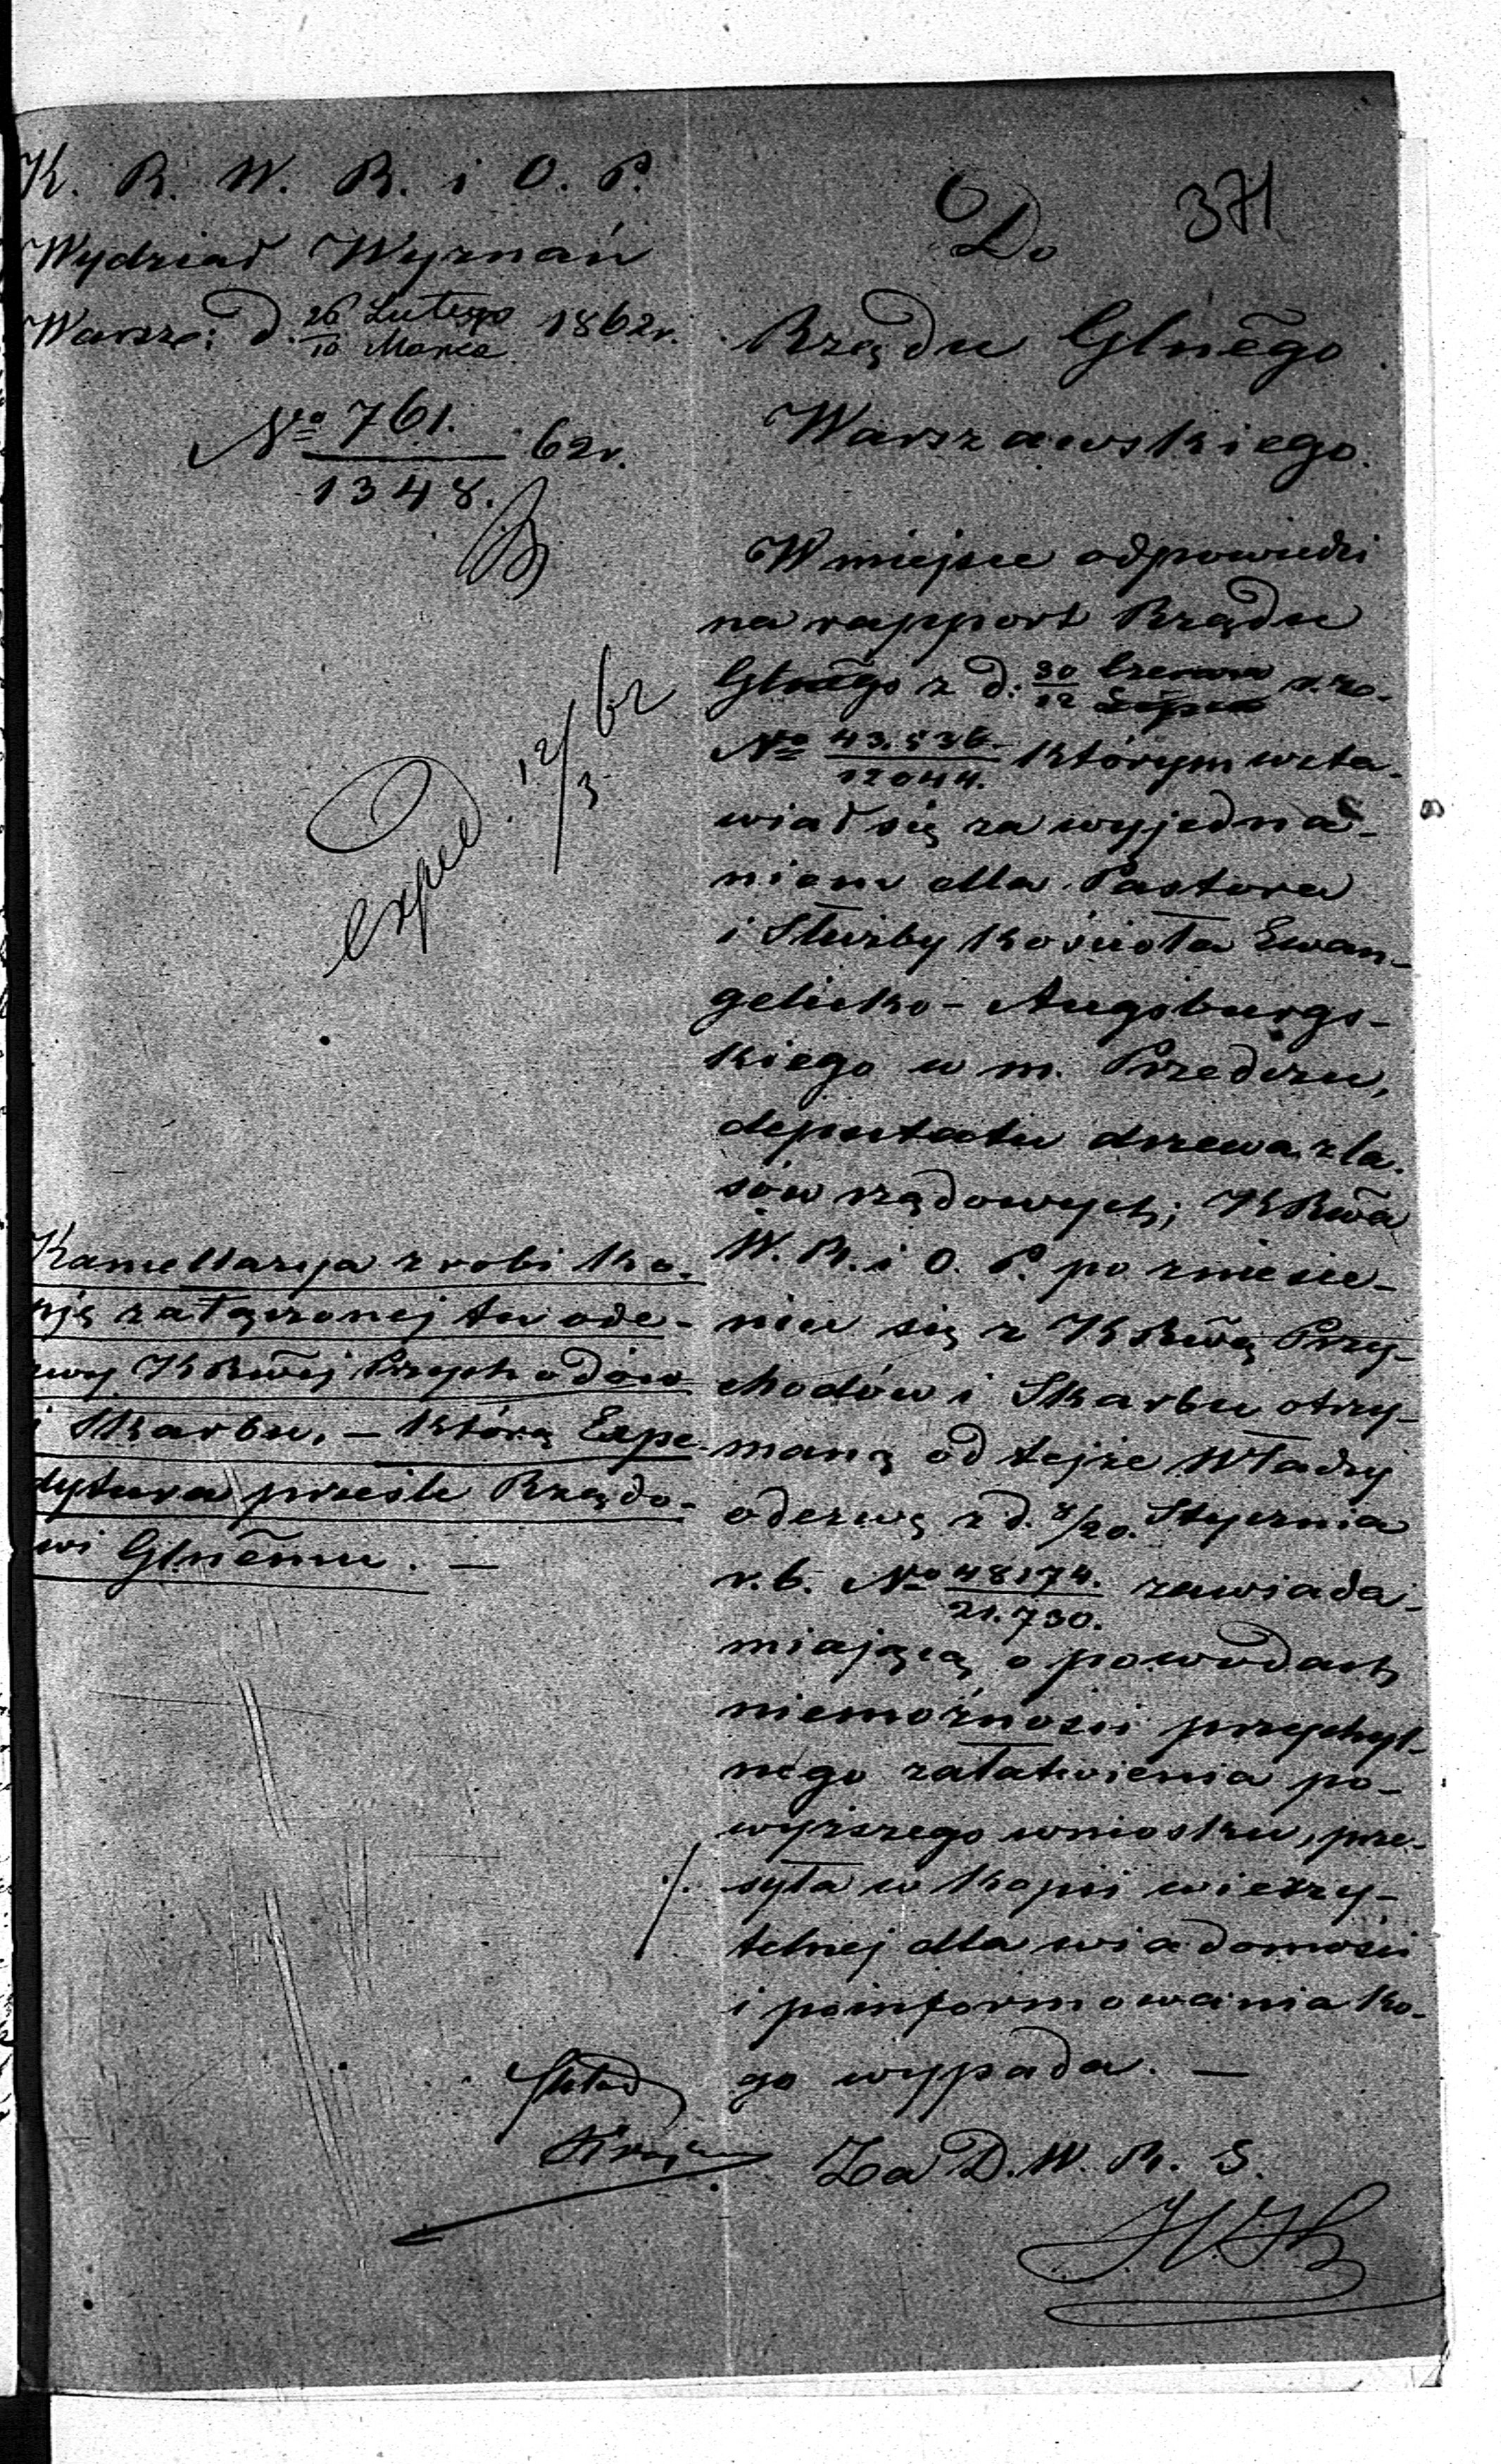 K. R. W. R. i O. P.
Wydział Wyznań
Warsza: d. 26 Lutego / 10 Marca 1862 r.
No 761. / 1348. 62 r.
exped. 12/3 62
Kancellarya zrobi ko-
pję załączonej tu ode-
zwy K Rwej Przychodów
i Skarbu, — którą Expe-
dytura prześle Rządo-
wi Glnemu. —
371
Do
Rządu Glnego
Warszawskiego.
W miejsce odpowiedzi
na rapport Rządu
Glnego z d: 30 Czerwca / 12 Lipca r. z.
No 43.536 / 12044. którym wsta-
wiał się za wyjedna-
niem dla Pastora
i Służby kościoła Ewan-
gelicko-Augsburgs-
kiego w m. Przedczu,
deputatu drzewa z la-
sów rządowych; K Rwa
W. R. i O. P. po zniesie-
niu się z K Rwą Przy-
chodów i Skarbu otrzy-
maną od tejże Władzy
odezwę z d. 8/20. Stycznia
r. b. No 48174. / 21.730. zawiada-
miającą o powodach
niemożności przychyl-
nego załatwienia po-
wyższego wniosku, prze-
syła w kopii wierzy-
telnej dla wiadomości
i poinformowania ko-
go wypada. —
Za D. W. R. S.